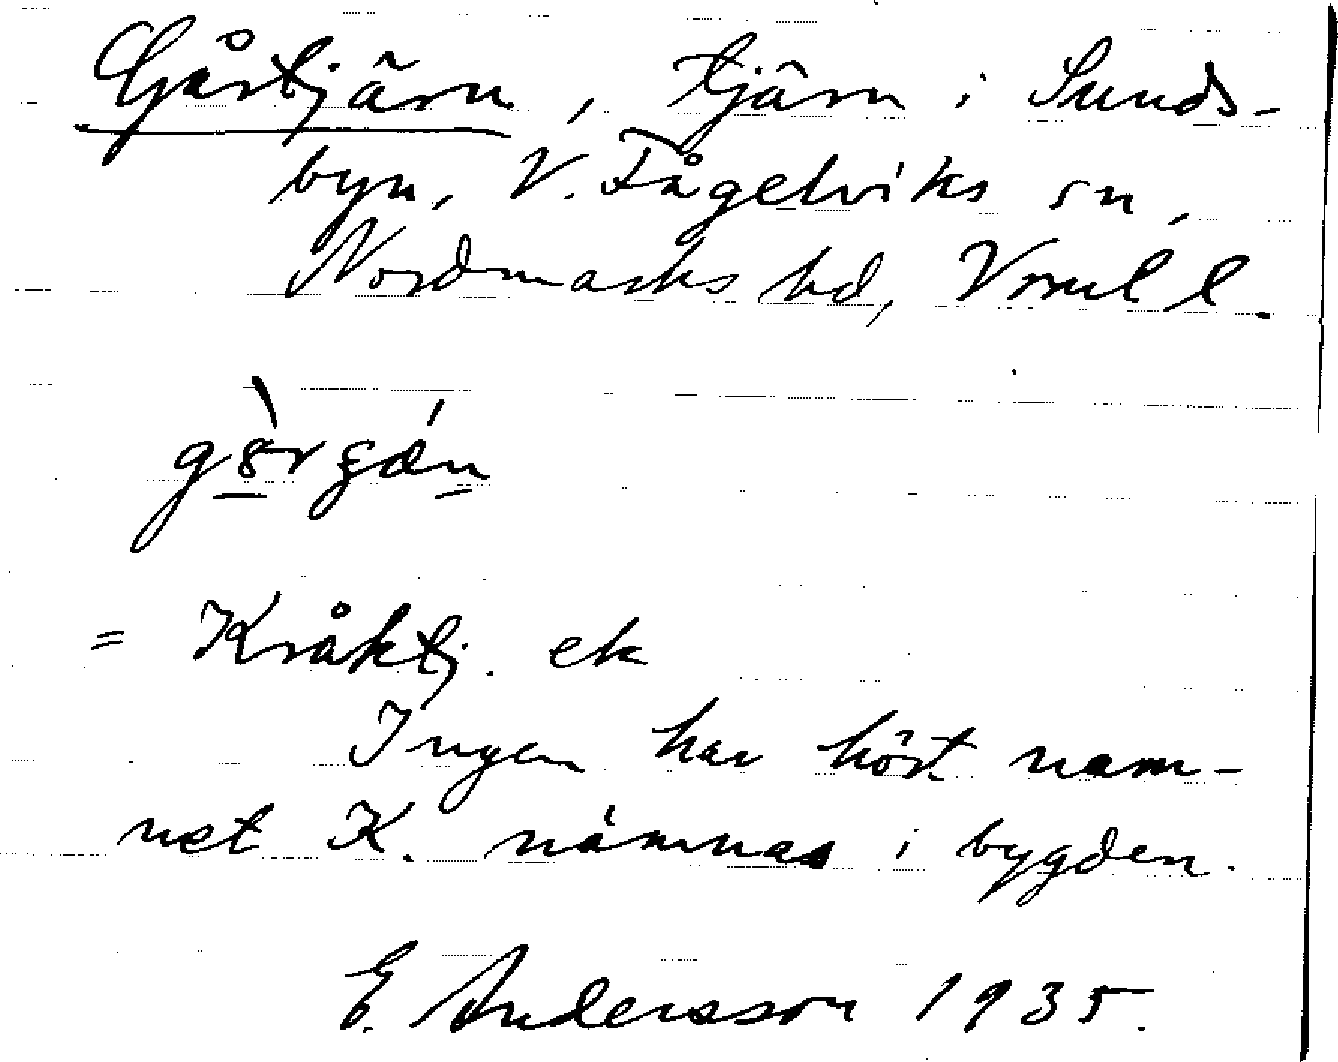 Gårtjärn, tjärn i Sunds-
byn, V. Fågelviks sn,
Nordmarks hd, Vrml l.
= Kråktj. ek
Ingen har hört nam-
net K. nämnas i bygden.
E. Andersson 1935.